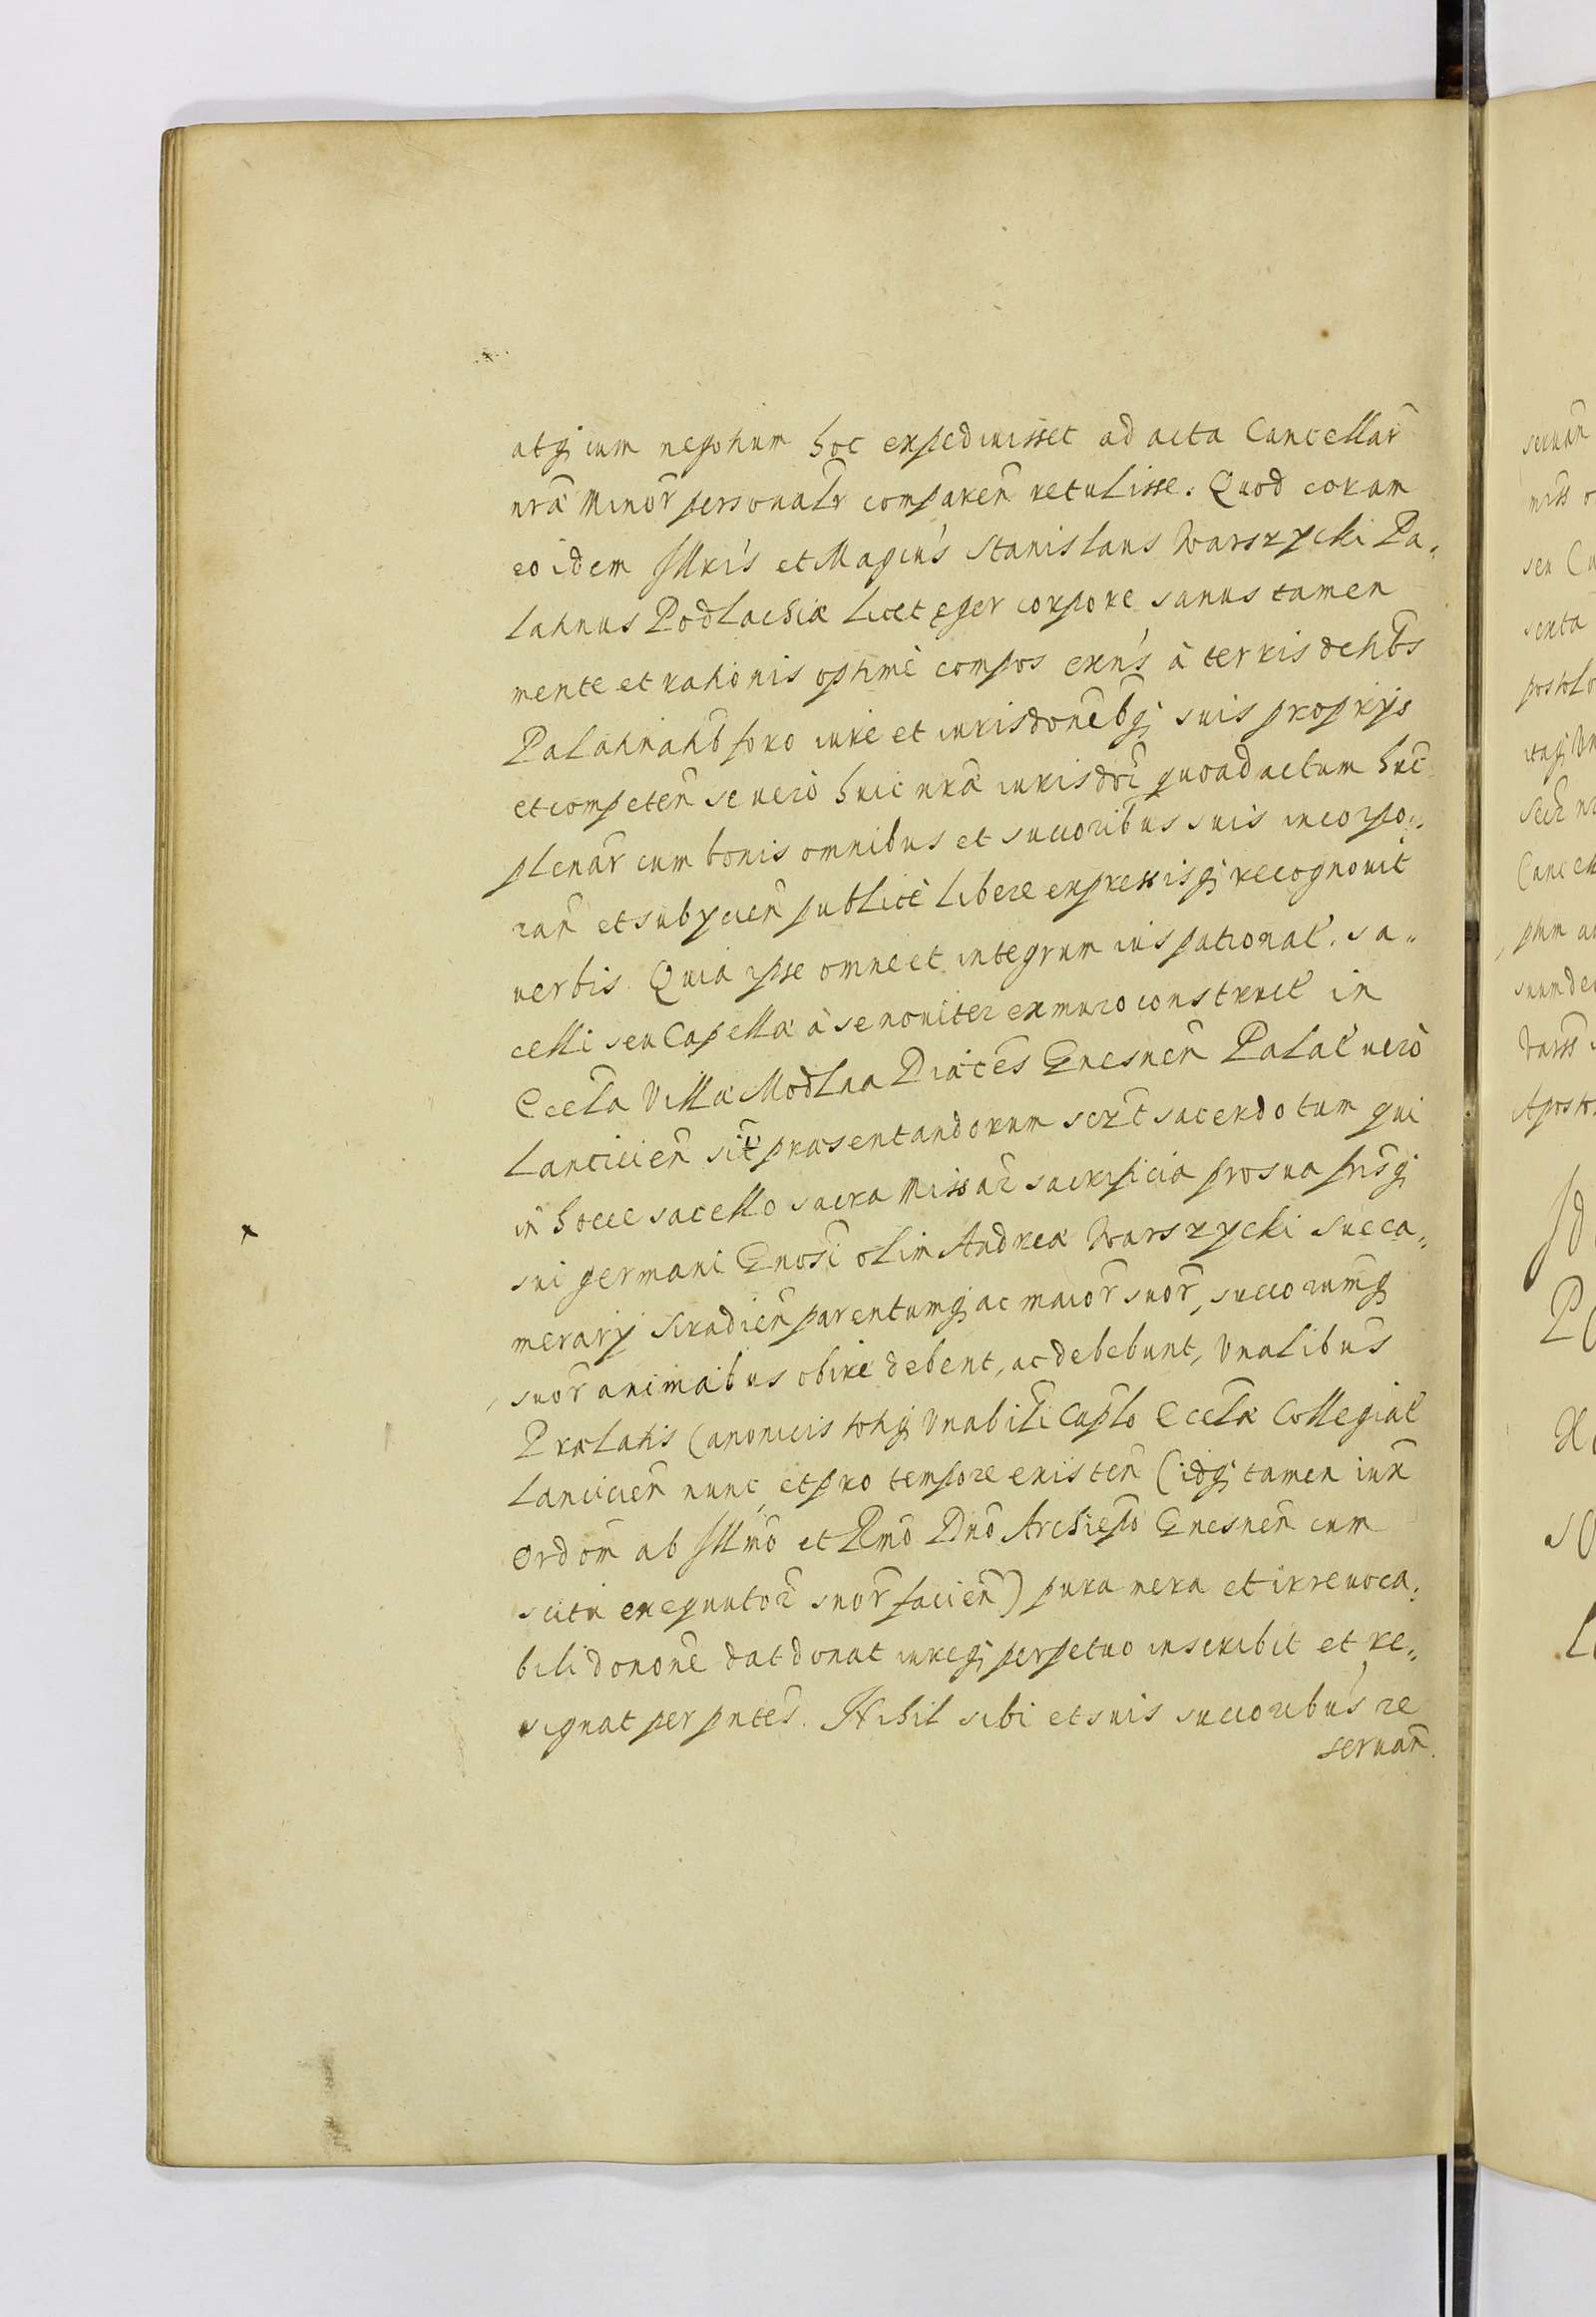 atq; cum negotium hoc expedivisset ad acta Cancellar̃
nr̃æ Minor̃ personalr̃ comparen̄ retulisse. Quod coram
eo idem Illris et Magcus Stanislaus Warszycki Pa„
latinus Podlachiæ licet ęger corpore sanus tamen
mente et rationis optimè compos exns à terris dehbs
Palatinatib foro iure et iurisdoneb; suis proprijs
et competen̄ se verò huic nræ iurisdoi quoad actum hunc
plenar̃ cum bonis omnibus et succoribus suis incorpo„
ran̄ et subycien̄ publicè libere expressisq; recognovit
verbis. Quia ipse omne et integrum ius patronal. Sa„
celli seu Capellæ à se noviter ex muro construct in
Eccla Villæ Modlna Diæces Gnesnen̄ Palat verò
Lancicien̄ sit præsentandorum seu sacerdotum qui
in hocce sacello sacra Missar̃ sacrificia pro sua frisq;
sui germani Gnosi olim Andreæ Warszycki Succa„
merarij Siradien̄ parentumq; ac maior̃ suor̃, succorumq;
suor̃ animabus obire debent, ac debebunt, Vnalibus
Prælatis Canonicis totiq; Vnabili Caplo Ecclæ Collegiat
Lancicien̄ nunc, et pro tempore existen̄ (idq; tamen iux
Ordom ab Illmo et Rmo Dno Archiepo Gnesnen̄ cum
scitu exequutor̃ suor̃ facien̄) pura mera et irrevoca„
bili donone dat donat iureq; perpetuo inscribit et re„
signat per pntes. Nihil sibi et suis succoribus re
servan̄.